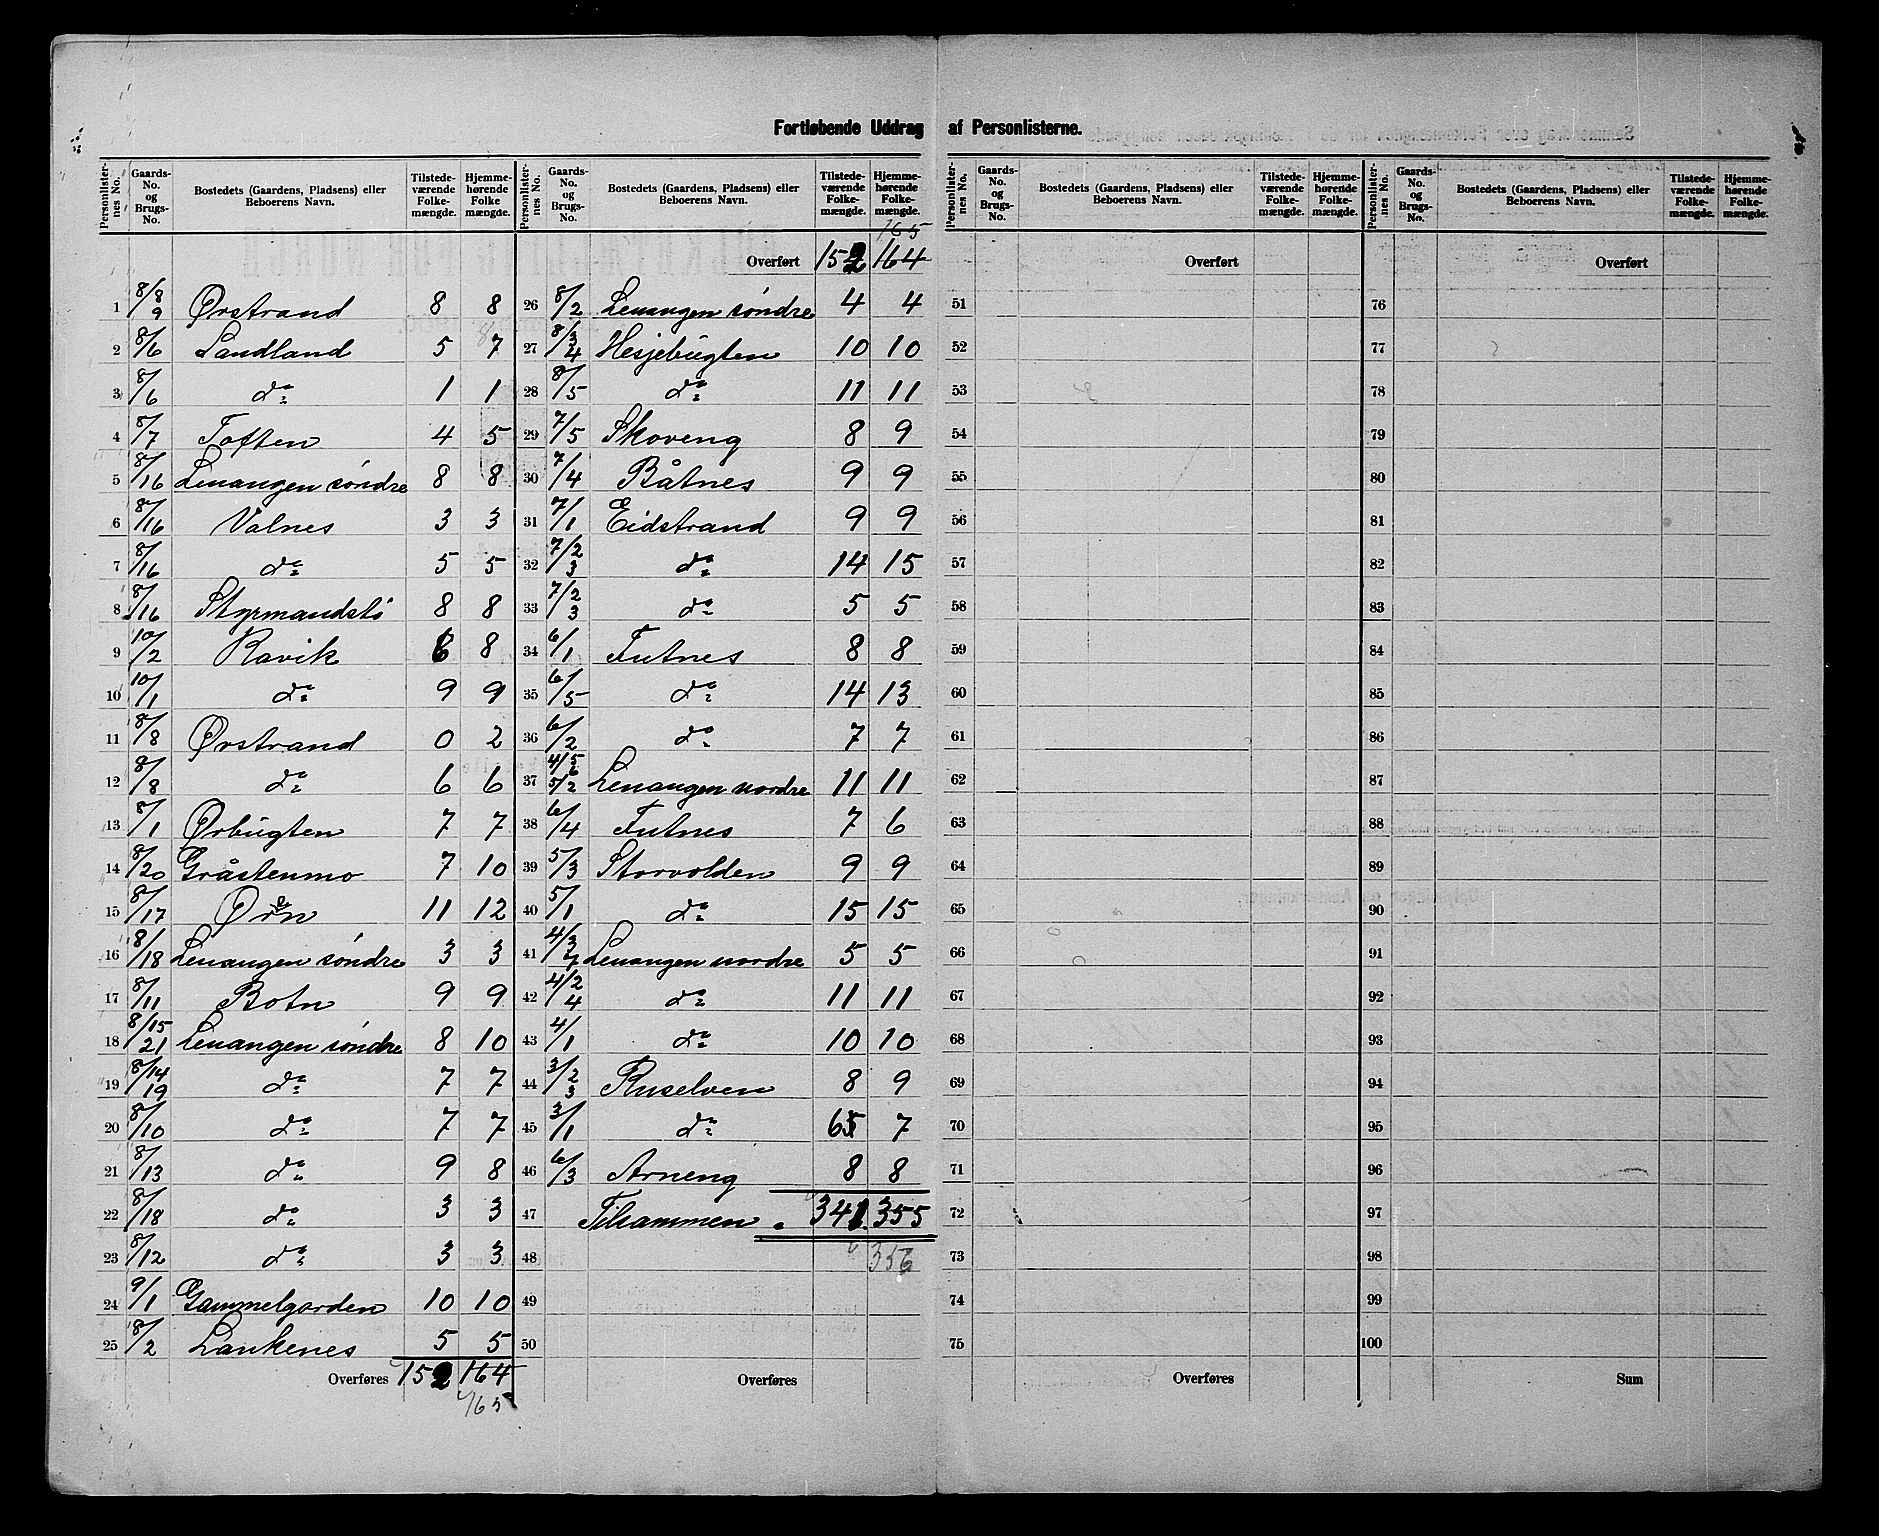 Fortløbende Uddrag af Personlisterne.
Personlisternes No. Gaards-No. og Brugs-No. Bostedets (Gaardens, Pladsens) eller Beboerens Navn. Tilstedeværende Folkemængde. Hjemmehørende Folkemængde.
1 8/8 9 Ørstrand 8 8
2 8/6 Sandland 5 7 8
3 8/6 do 1 1
4 8/7 Toften 4 5
5 8/16 Lenangen søndre 8 8
6 8/16 Valnes 3 3
7 8/16 do 5 5
8 8/16 Styrmandstö 8 8
9 10/2 Ravik 6 8
10 10/1 do 9 9
11 8/8 Ørstrand 0 2
12 8/8 do 6 6
13 8/1 Ørbugten 7 7
14 8/20 Gråstenmo 7 10
15 8/17 Øren 11 12
16 8/18 Lenangen søndre 3 3
17 8/11 Botn 9 9
18 8/15 21 Lenangen søndre 8 10
19 8/14 19 do 7 7
20 8/10 do 7 7
21 8/13 do 9 8
22 8/18 do 3 3
23 8/12 do 3 3
24 9/1 Gammelgarden 10 10
25 8/2 Lankenes 5 5
Overføres 152 164
165
Personlisternes No. Gaards-No. og Brugs-No. Bostedets (Gaardens, Pladsens) eller Beboerens Navn. Tilstedeværende Folkemængde. Hjemmehørende Folkemængde.
165
Overført 152 164
26 8/2 Lenangen søndre 4 4
27 8/3 4 Hesjebugten 10 10
28 8/5 do 11 11
29 7/5 Skoveng 8 9
30 7/4 Båtnes 9 9
31 7/1 Eidstrand 9 9
32 7/2 3 do 14 15
33 7/2 3 do 5 5
34 6/1 Futnes 8 8
35 6/5 do 14 13
36 6/2 do 7 7
37 4/5 6 5/2 Lenangen nordre 11 11
38 6/4 Futnes 7 6
39 5/3 Storvolden 9 9
40 5/1 do 15 15
41 4/3 7 Lenangen nordre 5 5
42 4/2 4 do 11 11
43 4/1 do 10 10
44 3/2 3 Ruselven 8 9
45 3/1 do 7
46 6/3 Arneng 8 8
47 Tilsammen 341 355
48 356
49
50
Overføres
Personlisternes No. Gaards-No. og Brugs-No. Bostedets (Gaardens, Pladsens) eller Beboerens Navn. Tilstedeværende Folkemængde. Hjemmehørende Folkemængde.
Overført
51
52
53
54
55
56
57
58
59
60
61
62
63
64
65
66
67
68
69
70
71
72
73
74
75
Overføres
Personlisternes No. Gaards-No. og Brugs-No. Bostedets (Gaardens, Pladsens) eller Beboerens Navn. Tilstedeværende Folkemængde. Hjemmehørende Folkemængde.
Overført
76
77
78
79
80
81
82
83
84
85
86
87
88
89
90
91
92
93
94
95
96
97
98
99
100
Sum